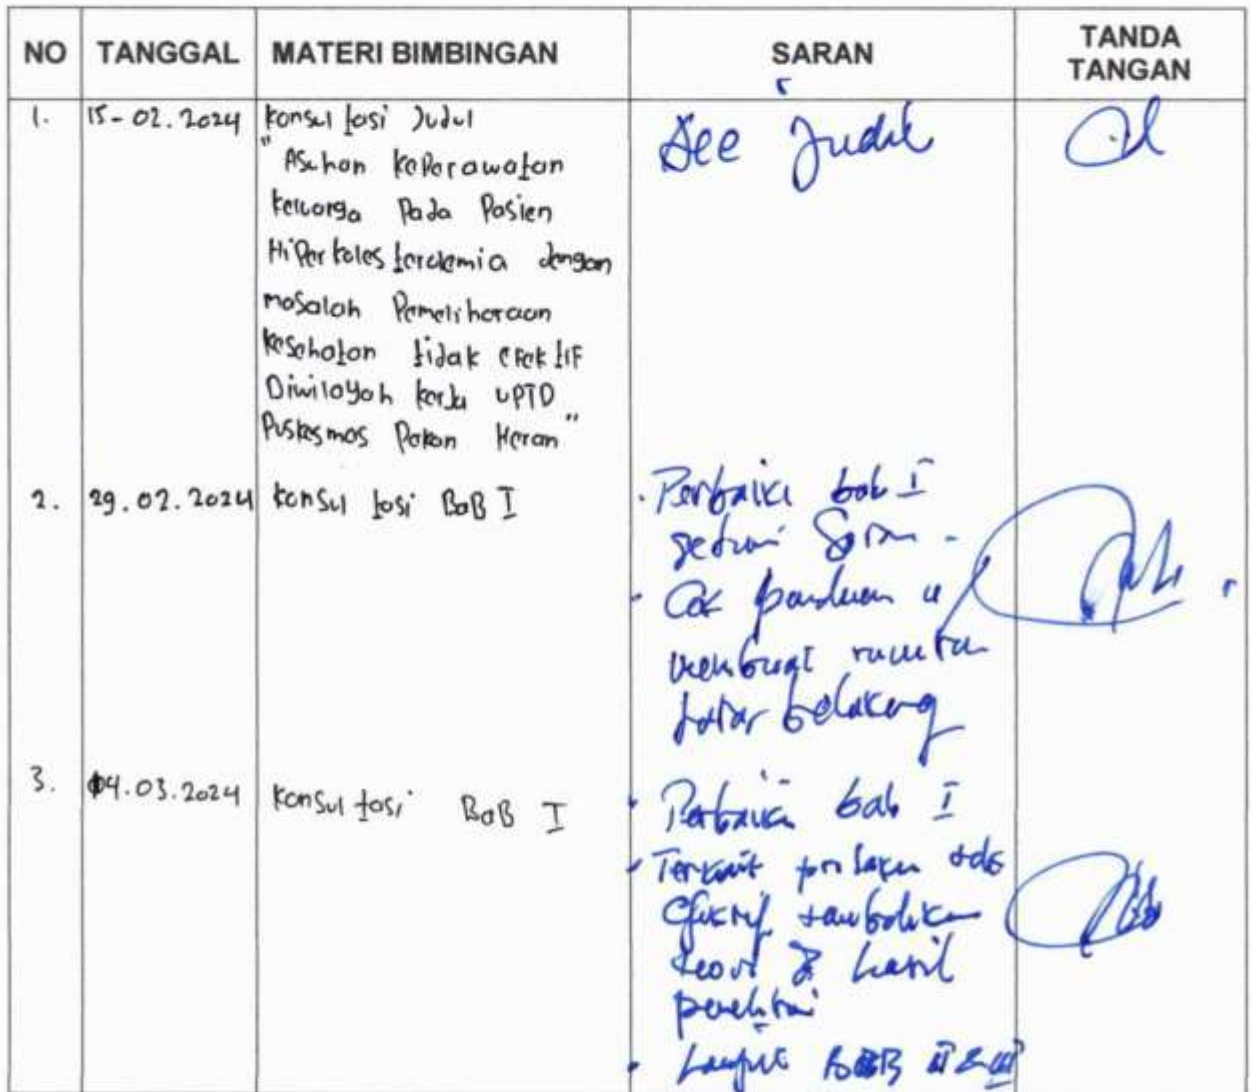 NO TANGGAL MATERI BIMBINGAN SARAN TANDA TANGAN
1. 15-02.2024 Konsultasi Judul
"Asuhan Keperawatan
Keluarga Pada Pasien
Hiperkolesterolemia dengan
masalah Pemeliharaan
Kesehatan tidak efektif
Diwilayah kerja UPTD
Puskesmas Pakan
Acc Judul
2. 29.02.2024 Konsultasi BAB I
Perbaiki bab I
sesuai Saran
Cek panduan u
membuat
latar belakang
3. 04.03.2024 Konsultasi BAB I
Perbaiki bab I
Terkait
efektif tambahkan
teori & hasil
penelitian
Lanjut BAB II & III